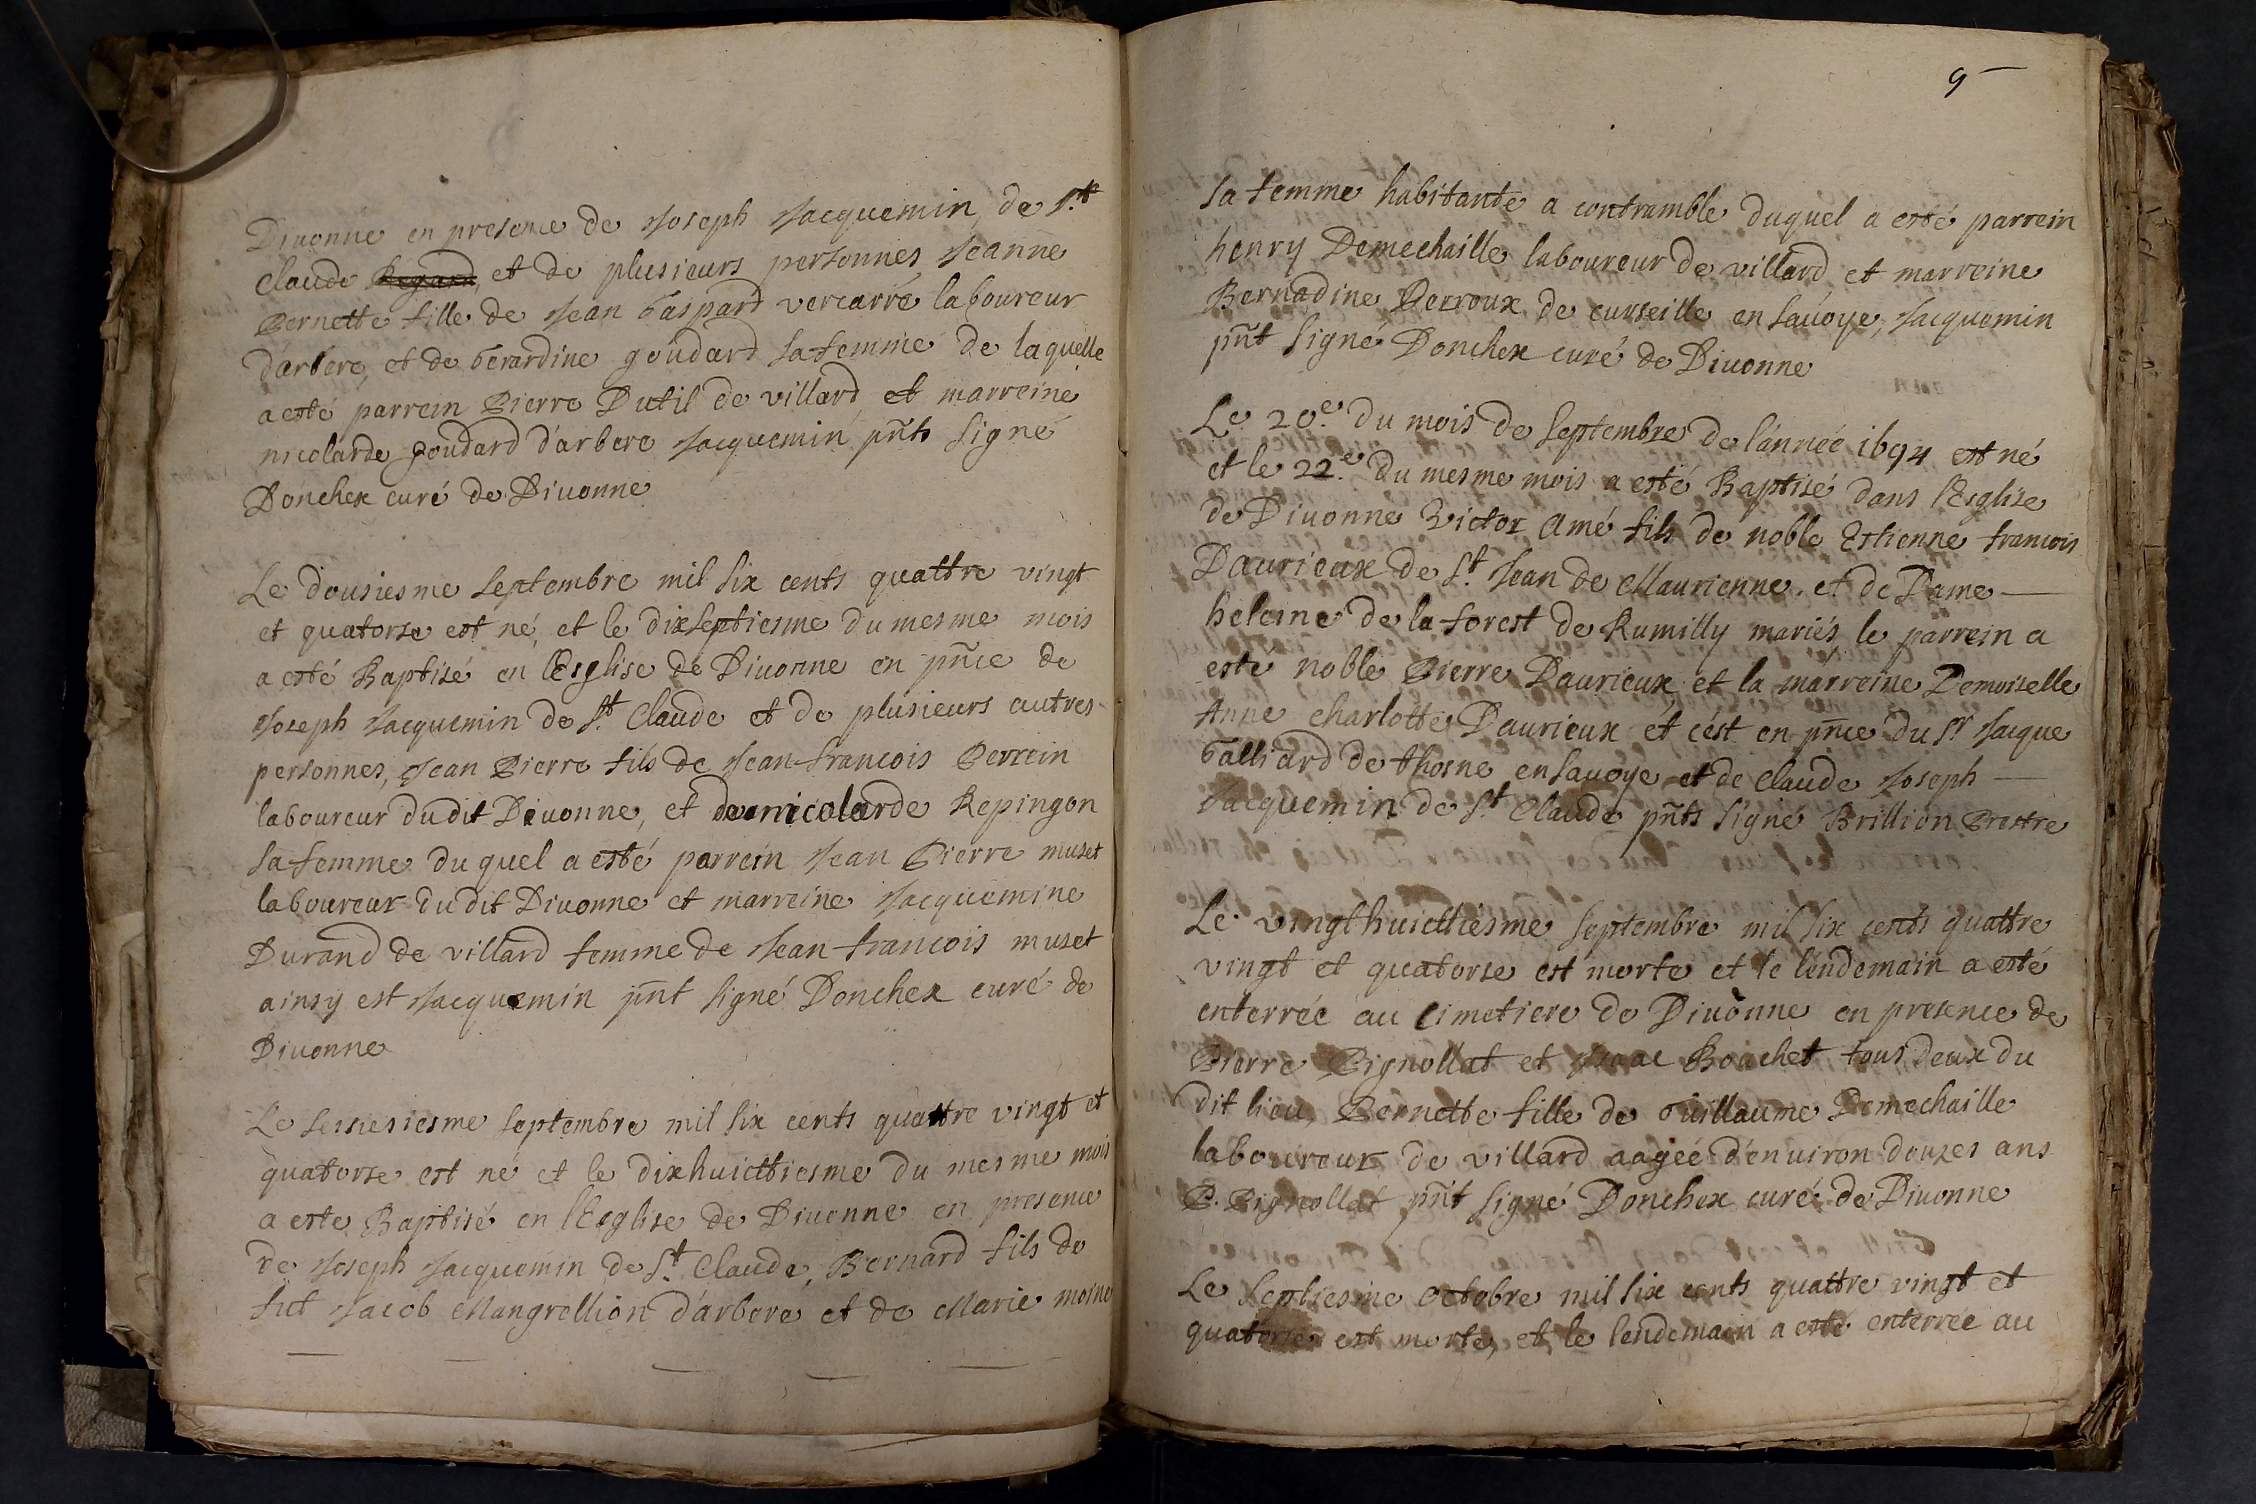 Diuonne en presence de Joseph Jacquemin de St
Claude Regard, et de plusieurs personnes Jeanne
Pernette fille de Jean Gaspard vercarre laboureur
d'arbere, et de berardine goudard sa femme de laquelle
a esté parrein Pierre Dutil de villard et marreine
nicolarde goudard d'arbere Jacquemin pñts signé
Donchex curé de Diuonne
Le dousiesme septembre mil six cents quattre vingt
et quatorse est né, et le dixseptiesme du mesme mois
a esté Baptisé en l'Esglise de Diuonne en pñce de
Joseph Jacquemin de St. Claude et de plusieurs autres
personnes, Jean Pierre fils de Jean-francois Perrein
laboureur dudit Diuonne, et de nicolarde Repingon
sa femme du quel a esté parrein Jean Pierre muset
laboureur dudit Diuonne et marreine Jacquemine
Durand de villard femme de Jean-francois muset
ainsy est Jacquemin pñt signé Donchex curé de
Diuonne
Le sessiesiesme septembre mil six cents quattre vingt et
quatorse est né et le dixhuicttiesme du mesme mois
a este Baptisé en l'Esglise de Diuonne en presence
de Joseph Jacquemin de St. Claude, Bernard fils de
fut Jacob Mangrellion d'arbere et de Marie moine
9
sa femme habitante a contramble duquel a esté parrein
henry Demechaille laboureur de villard et marreine
Bernadine Perroux de curseille en sauoye, Jacquemin
pñt signé Donchex curé de Diuonne
Le 20.e du mois de septembre de l'année 1694 est né
et le 22.e du mesme mois a esté Baptisé dans l'Esglise
de Diuonne Victor Amé fils de noble Estienne francois
Daurieux de St. Jean de Maurienne. et de Dame
heleine de la forest de Rumilly mariés le parrein a
esté noble Pierre Daurieux et la marreine Demoiselle
Anne charlotte Daurieux et c'est en pñce du Sr Jacque
Galliard de thosne en sauoye et de Claude Joseph
Jacquemin de St. Claude pñts signé Brillion Prestre
Le vingthuicttiesme septembre mil six cents quattre
vingt et quatorse est morte et le lendemain a esté
enterrée au cimetiere de Diuonne en presence de
Pierre Pignollat et Isaac Bouchet tous deux du
dit lieu, Pernette fille de Guillaume Demechaille
laboureur de villard aagée d'enuiron douzes ans
P. Pignollat pñt signé Donchex curé de Diuonne
Le septiesme octobre mil six cents quattre vingt et
quatorse est morte, et le lendemain a esté enterrée au